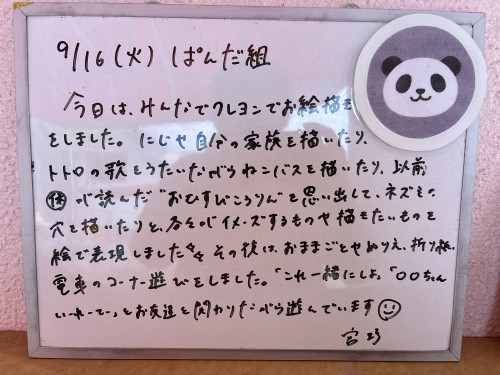 9/16(火) ぱんだ組
今日は、みんなでクレヨンでお絵描き
をしました。にじや自分の家族を描いたり、
トトロの歌をうたいながらねこバスを描いたり、以前
が読んだ"おむすびころりん"を思い出して、ネズミの
穴を描いたりと、各々がイメーズするものや描きたいものを
絵で表現しました その後は、おままごとやぬりえ、折り紙、
電車のコーナー遊びをしました。「これ一緒にしよ」「○○ちゃん
いーれーてー」とお友達と関わりながら遊んでいます